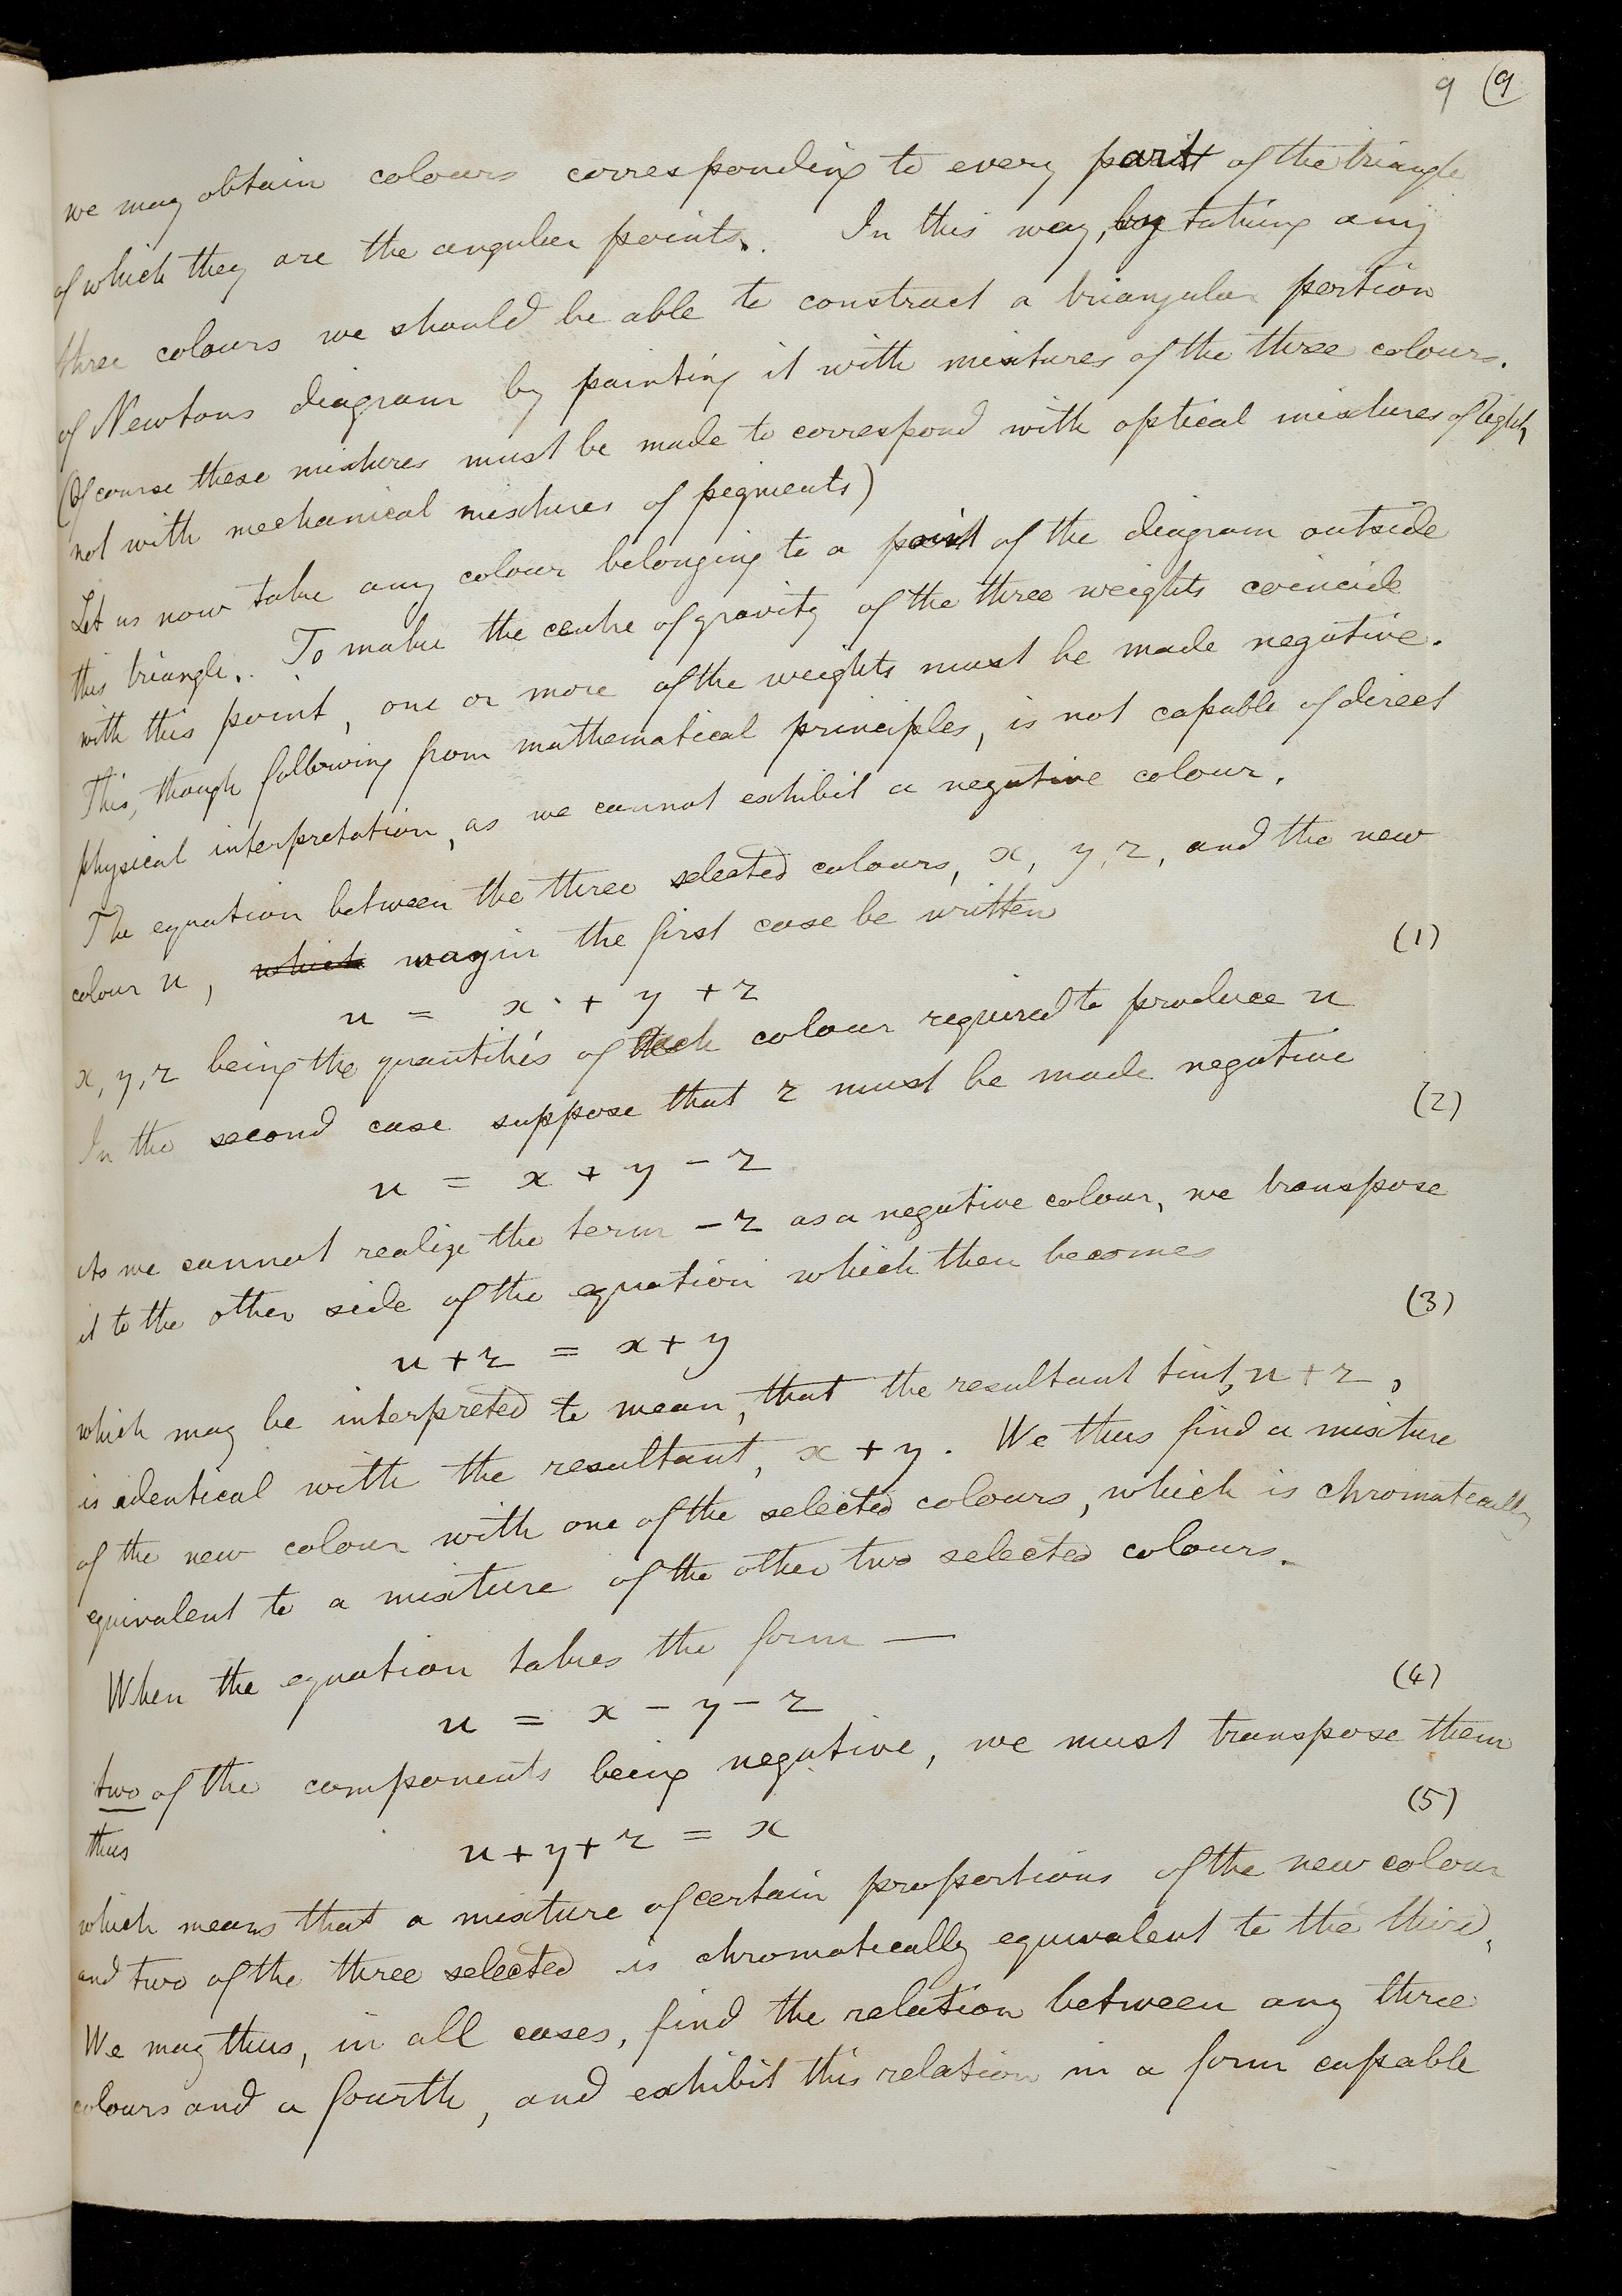 9 (9
we may obtain colours corresponding to every part of the triangle
of which they are the angular points. In this way, by taking any
three colours we should be able to construct a triangular portion
of Newtons diagram by painting it with mixtures of the three colours.
(Of course these mixtures must be made to correspond with optical mixtures of light,
not with mechanical mixtures of pigments)
Let us now take any colour belonging to a point of the diagram outside
this triangle. To make the centre of gravity of the three weights coincide
with this point, one or more of the weights must be made negative.
This, though following from mathematical principles, is not capable of direct
physical interpretation, as we cannot exhibit a negative colour.
The equation between the three selected colours, x, y, z, and the new
colour u, which may in the first case be written
u = x + y + z (1)
x, y, z being the quantities of each colour required to produce u
In the second case suppose that z must be made negative
u = x + y - z (2)
As we cannot realize the term - z as a negative colour, we transpose
it to the other side of the equation which then becomes
u + z = x + y (3)
which may be interpreted to mean, that the resultant tint, u + z,
is identical with the resultant, x + y. We thus find a mixture
of the new colour with one of the selected colours, which is chromatically
equivalent to a mixture of the other two selected colours.
When the equation takes the form —
u = x - y - z (4)
two of the components being negative, we must transpose them
thus u + y + z = x (5)
which means that a mixture of certain proportions of the new colour
and two of the three selected is chromatically equivalent to the third.
We may thus, in all cases, find the relation between any three
colours and a fourth, and exhibit this relation in a form capable